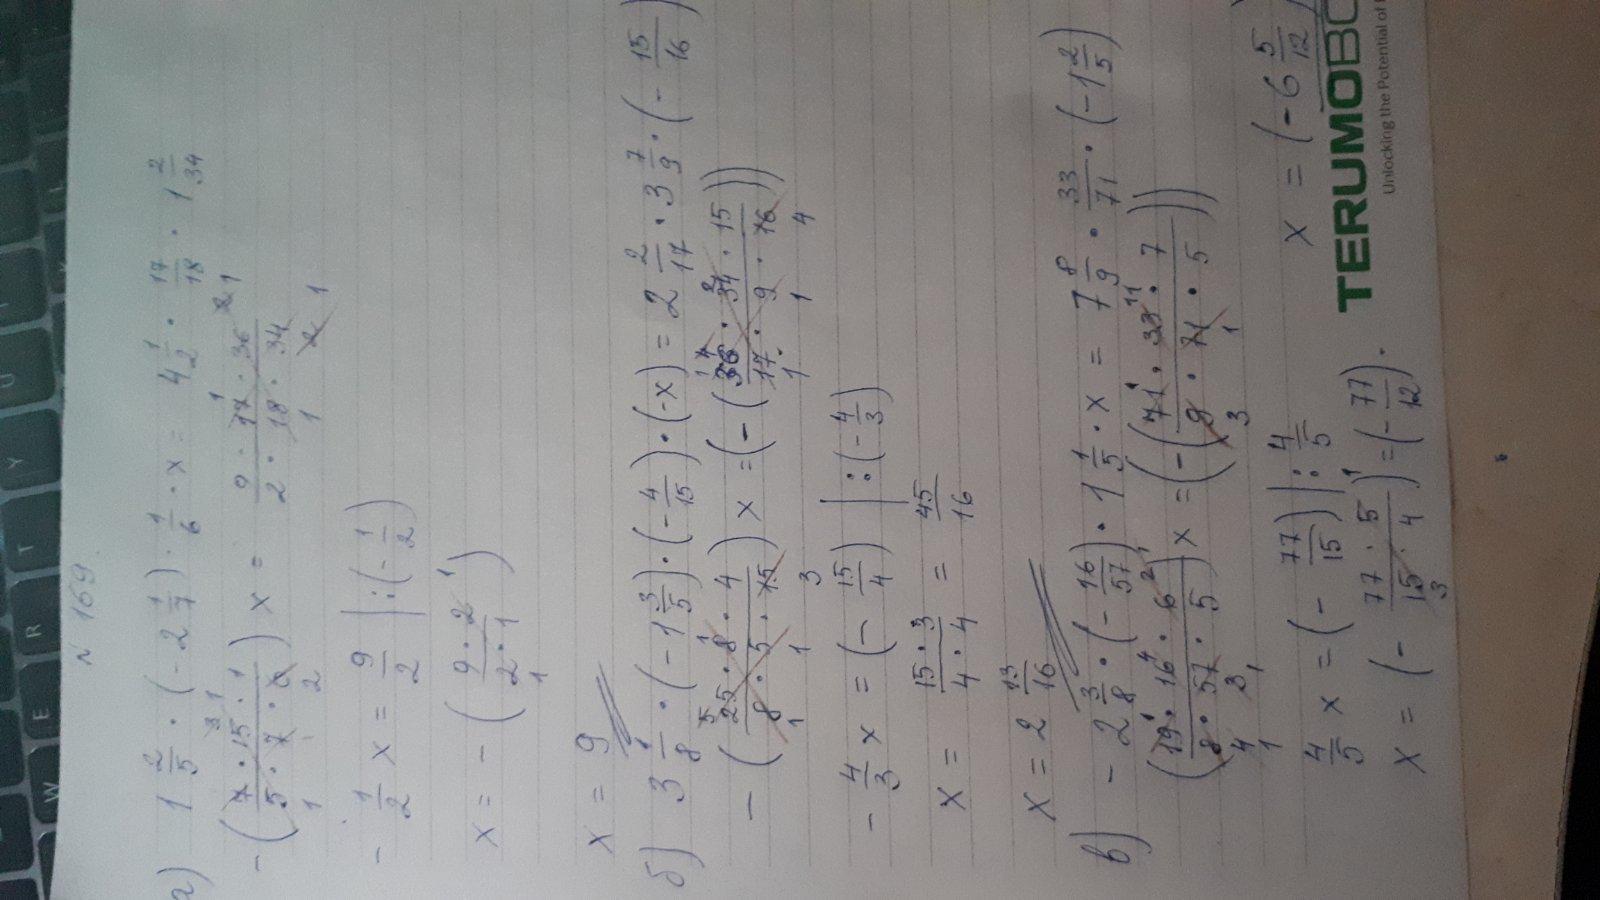 N 169.
а) 1 2/5 · (- 2 1/7) · 1/6 · x = 4 1/2 · 17/18 · 1 2/34
-(7 · 15 · 1 / 5 · 7 · 6) x = 9 · 17 · 36 / 2 · 18 · 34
- 1/2 x = 9/2 | : (- 1/2)
x = - (9 · 2 / 2 · 1)
x = 9
б) 3 1/8 · (- 1 3/5) · (- 4/15) · (-x) = 2 2/17 · 3 7/9 · (- 15/16)
- (25 · 8 · 4 / 8 · 5 · 15) x = (- (36 · 34 · 15 / 17 · 9 · 16))
- 4/3 x = (- 15/4) | : (- 4/3)
x = 15 · 3 / 4 · 4 = 45/16
x = 2 13/16
в) - 2 3/8 · (- 16/57) · 1 1/5 · x = 7 8/9 · 33/71 · (- 1 2/5)
(19 · 16 · 6 / 8 · 57 · 5) x = (- (71 · 33 · 7 / 9 · 71 · 5))
4/5 x = (- 77/15) | : 4/5
x = (- 77 · 5 / 15 · 4) = (- 77/12).
x = (- 6 5/12)
TERUMOBC
Unlocking the Potential of
W E R T Y U